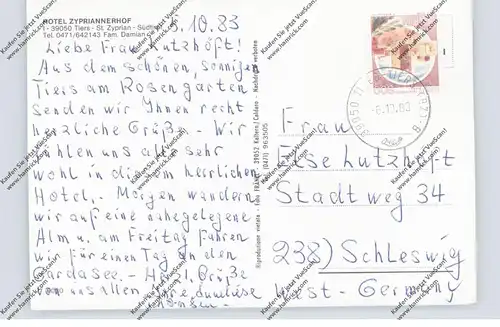 HOTEL ZYPRIANNERHOF
I - 39050 Tiers - St. Zyprian - Südtirol
Tel. 0471/642143 Fam. Damian
5.10.83
Liebe Frau Lutzhöft!
Aus dem schönen, sonnigen
Tiers am Rosengarten
senden wir Ihnen recht
herzliche Grüße. - Wir
fühlen uns allen sehr
wohl in diesem herrlichen
Hotel. - Morgen wandern
wir auf eine nahegelegene
Alm u. am Freitag fahren
wir für einen Tag an den
Gardasee. - Herzl. Grüße
von uns allen Ihre
Frau
Else Lutzhöft
Stadtweg 34
238) Schleswig
West-Germany
Nachdruck verboten
Foto 39052 Kaltern / Caldaro
Riproduzione vietata
39050 TI